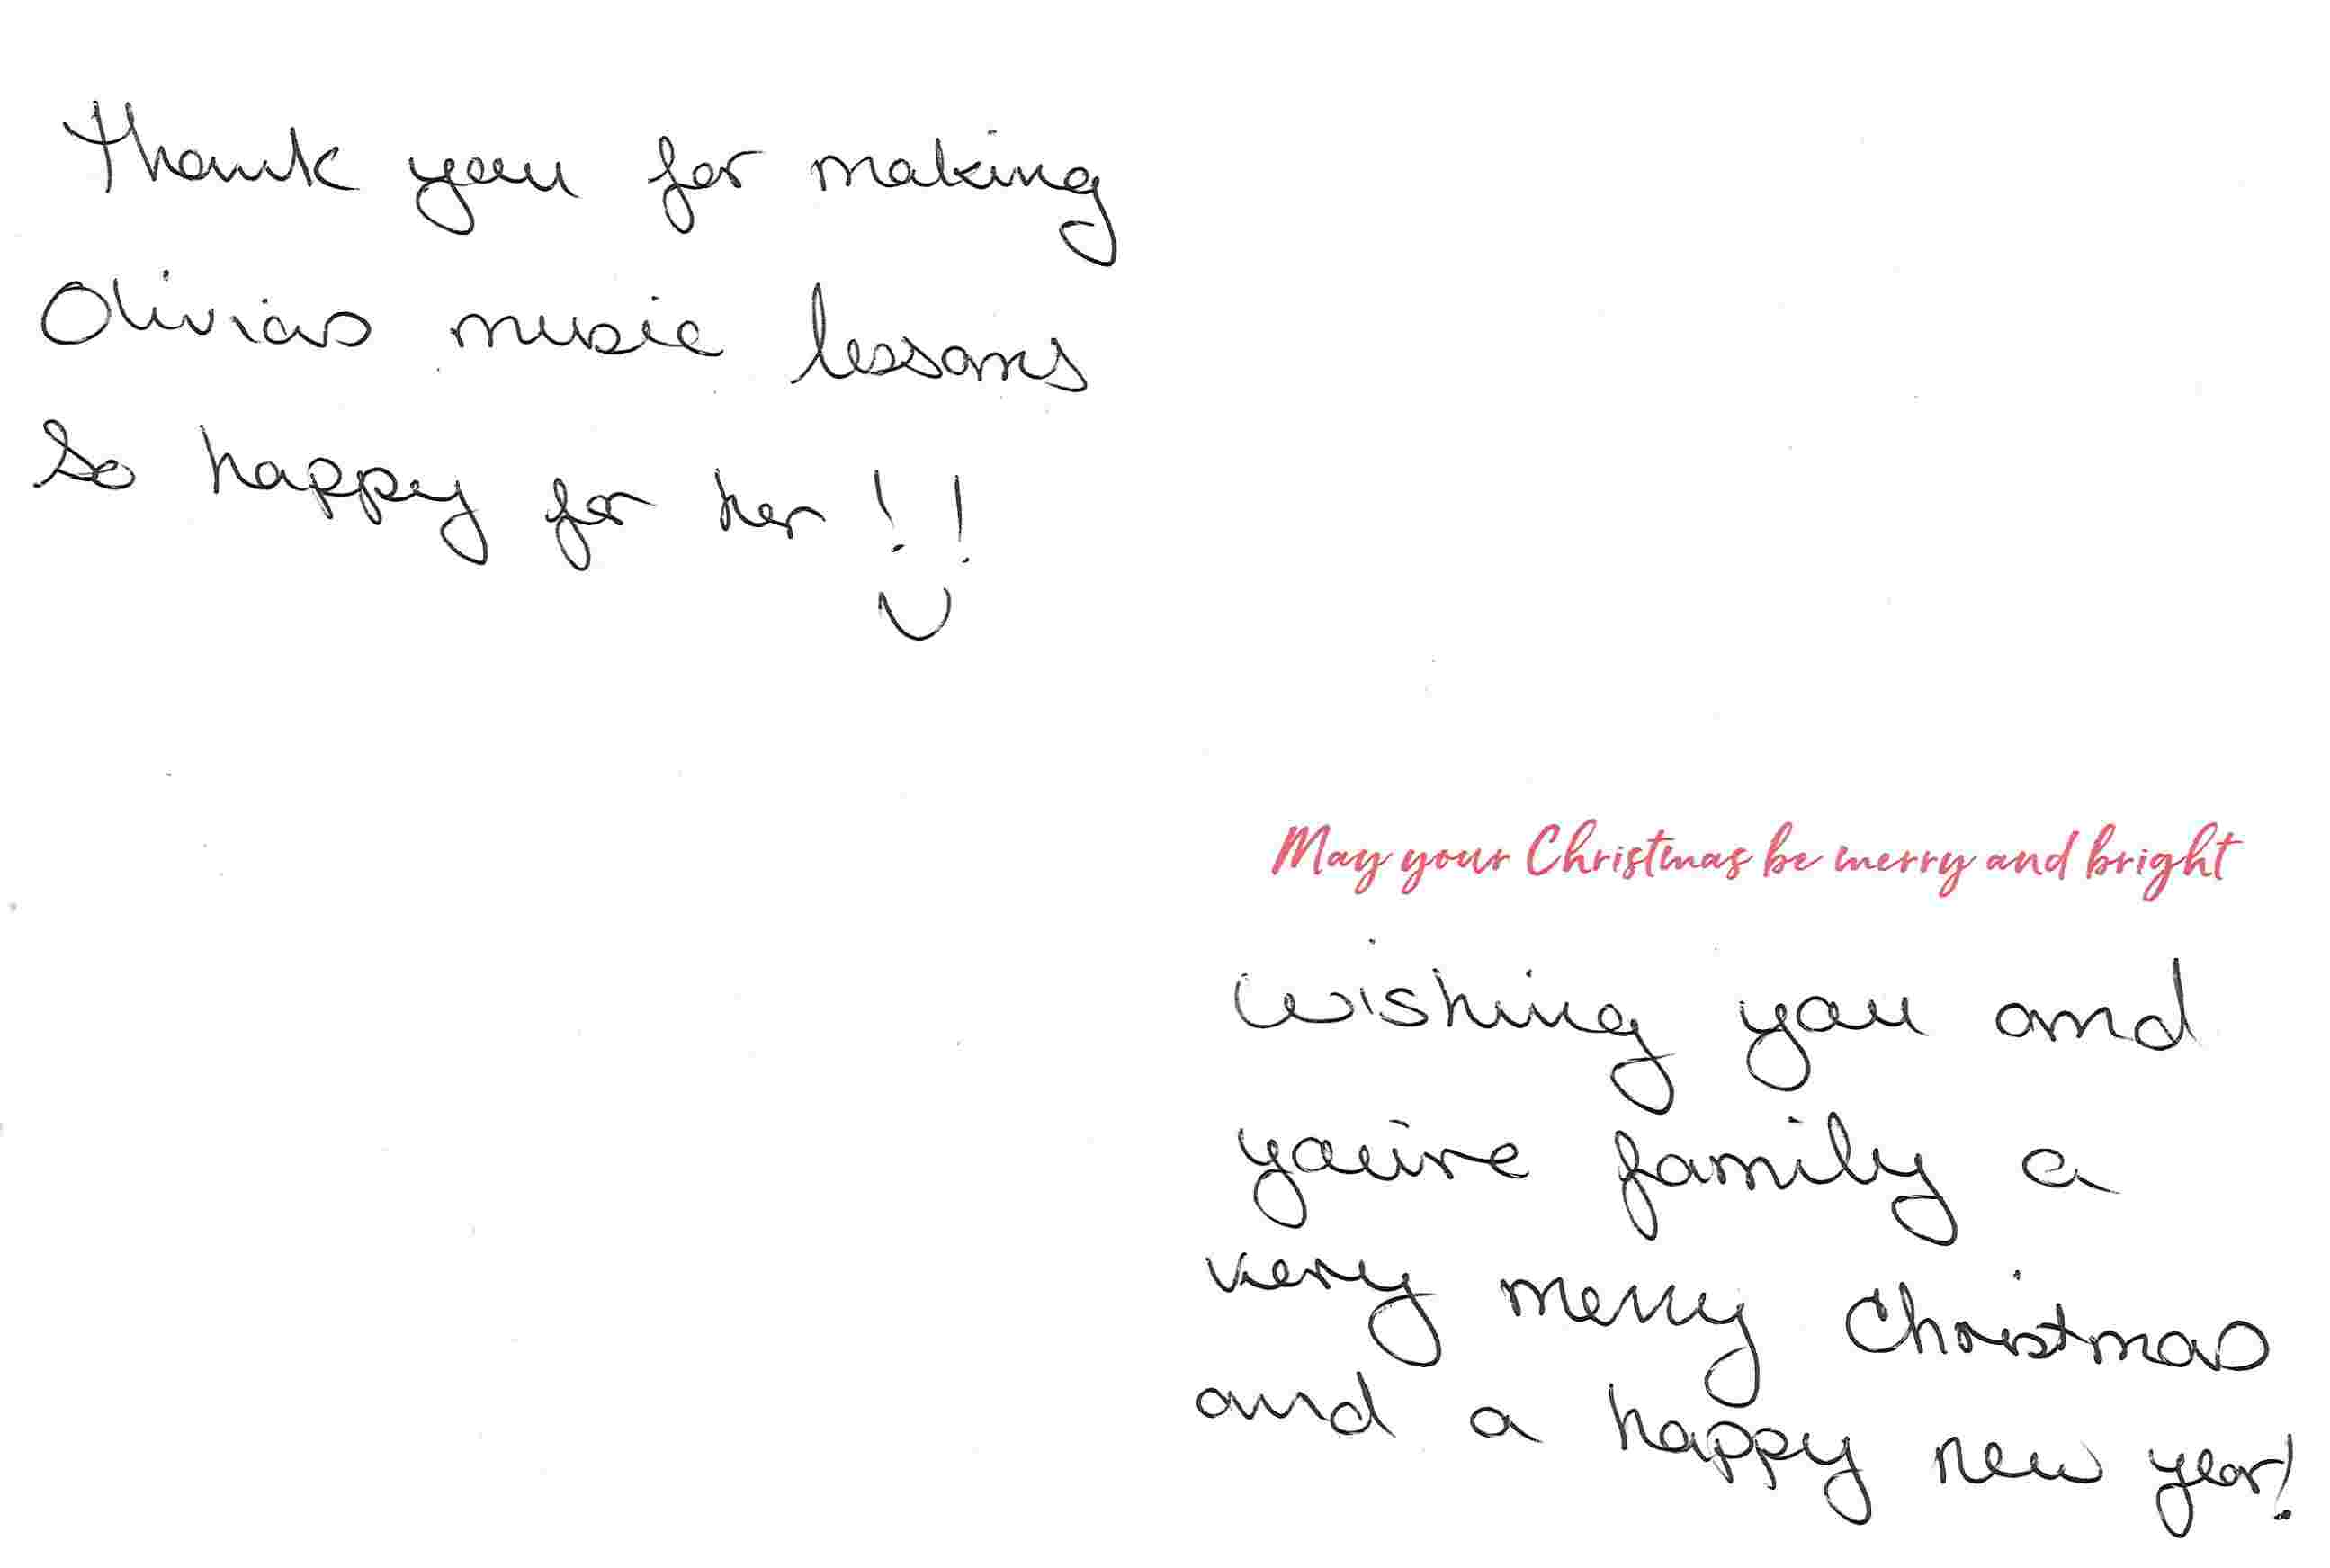 thank you for making
Olivias music lessons
So happy for her !!
May your Christmas be merry and bright
wishing you and
you're family a
very merry Christmas
and a happy new year!